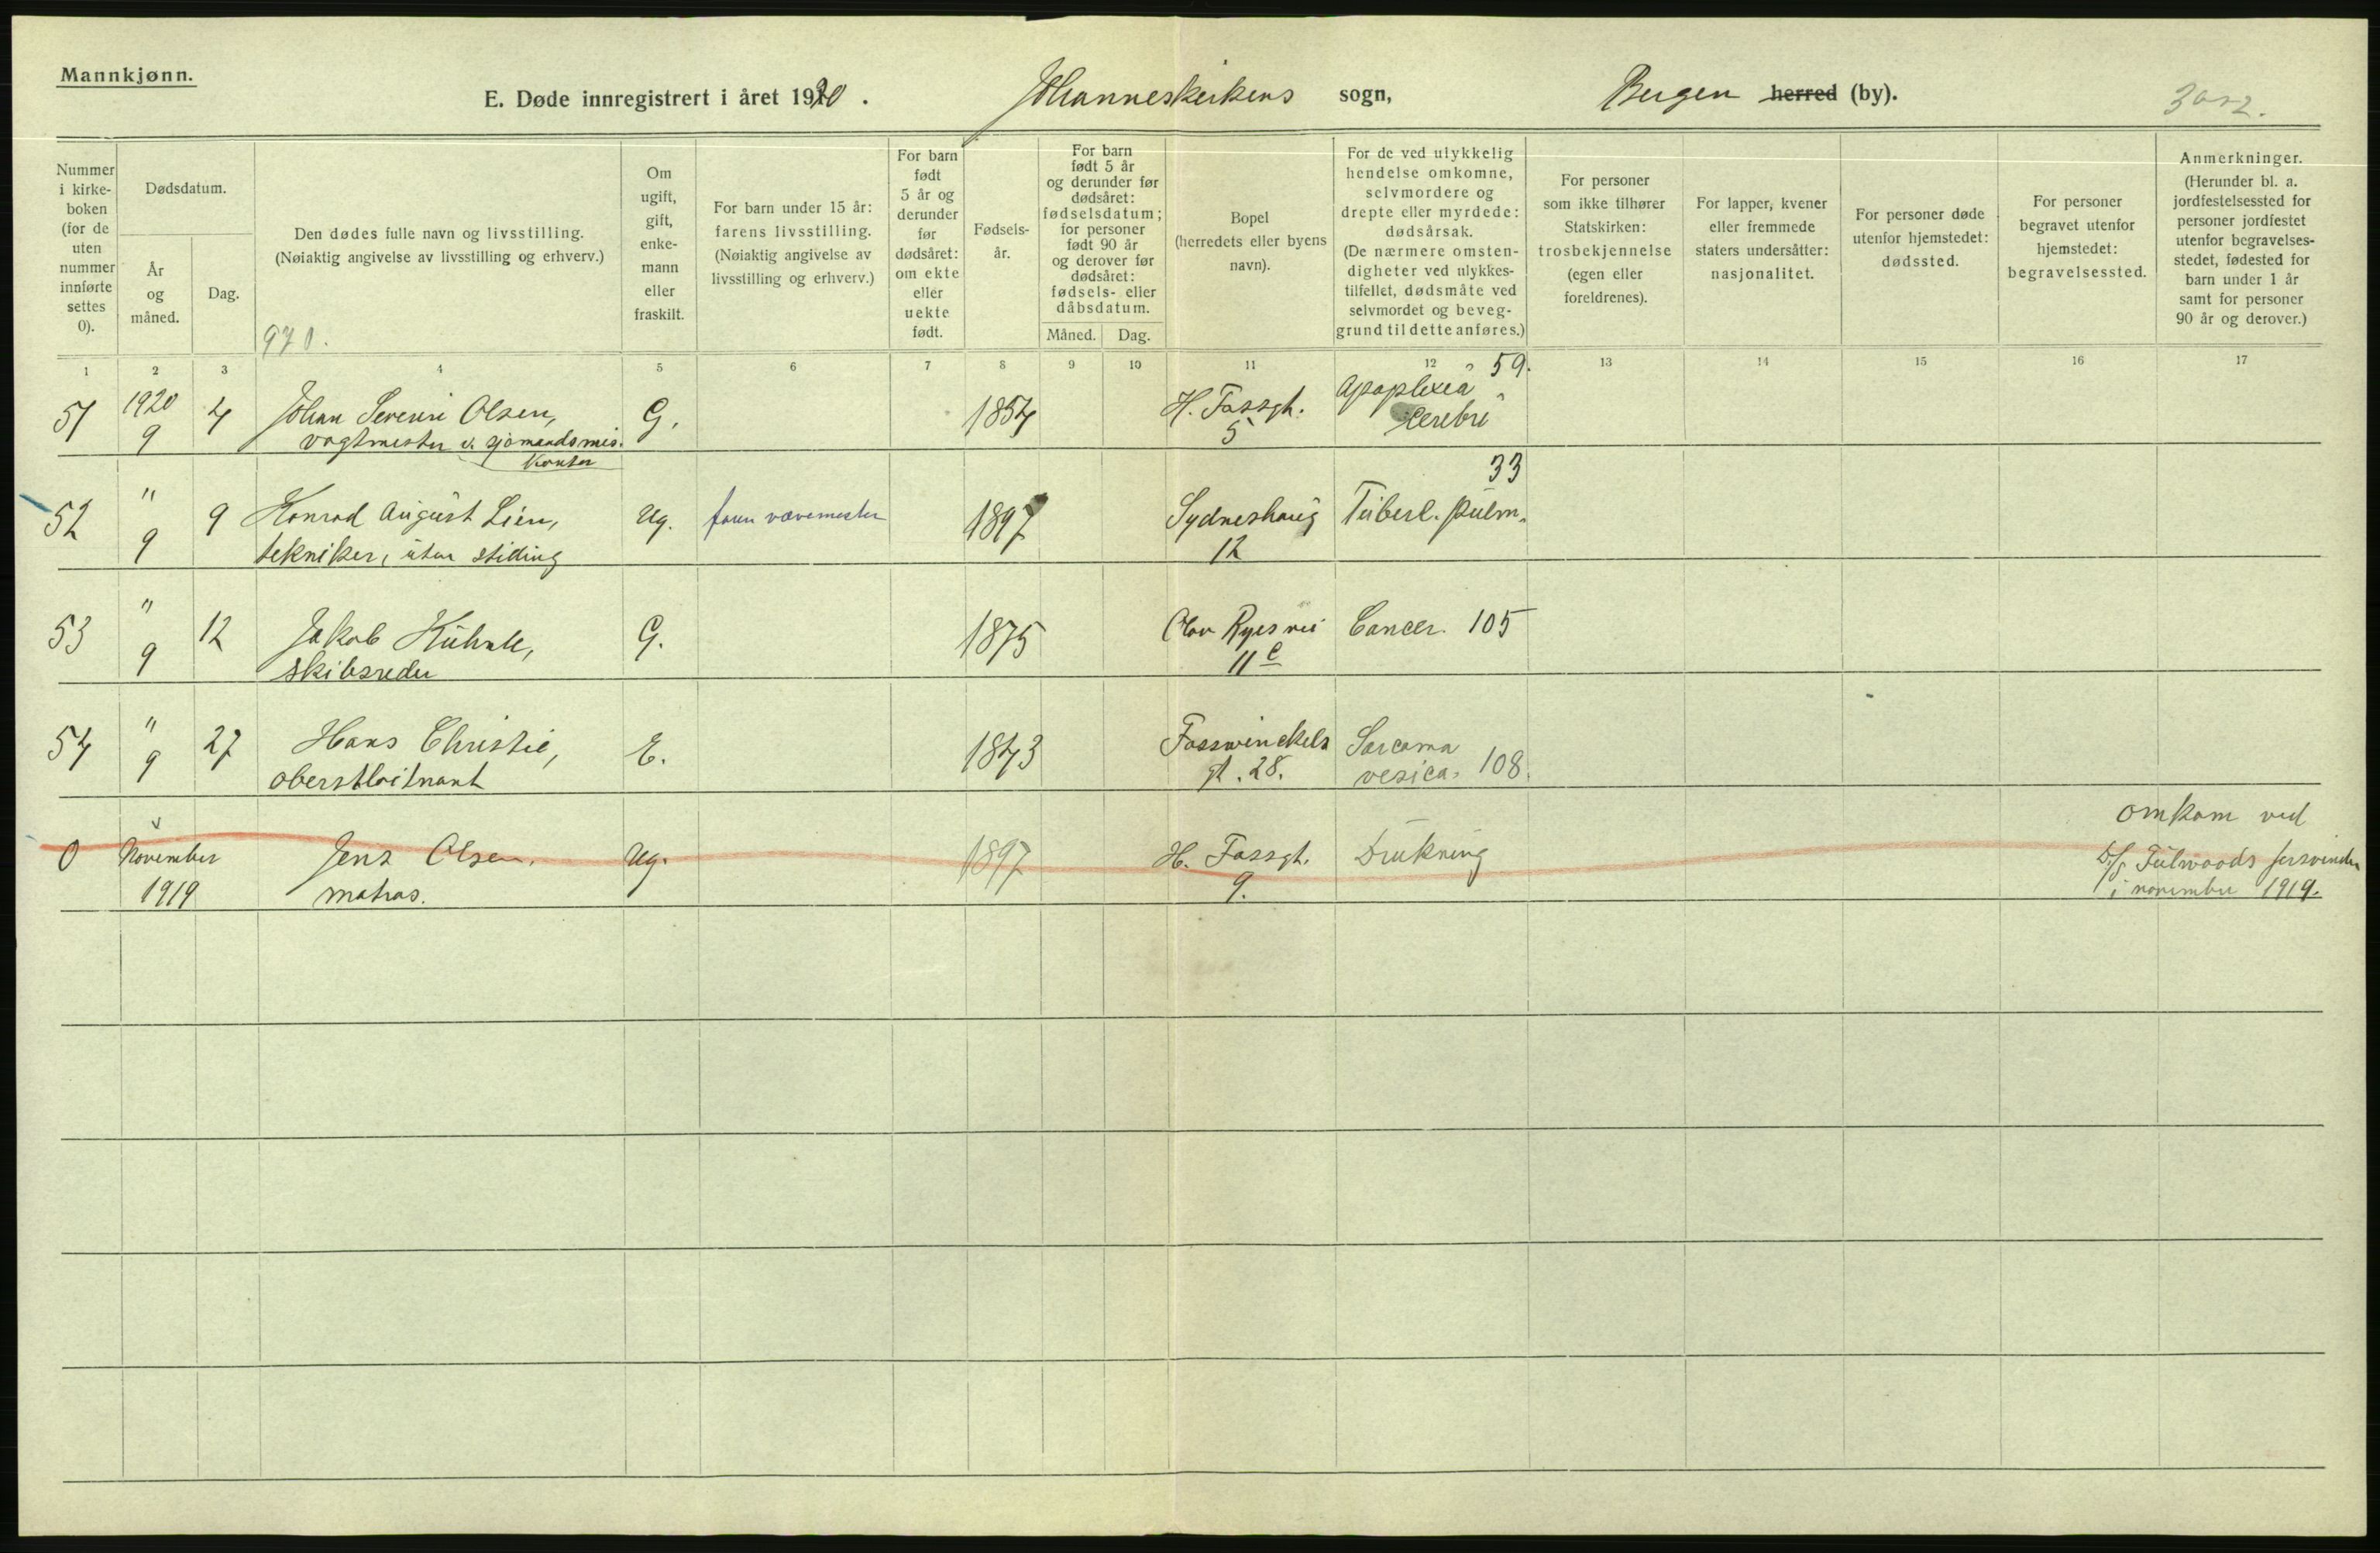 Mannkjønn.
E. Døde innregistrert i året 1920. Johanneskirkens sogn, Bergen herred (by).
Nummer i kirke- boken (for de uten nummer innførte settes 0).
Dødsdatum.
År og måned.
Dag.
Den dødes fulle navn og livsstilling.
(Nøiaktig angivelse av livsstilling og erhverv.)
970.
Om ugift, gift, enke- mann eller fraskilt.
For barn under 15 år: farens livsstilling. (Nøiaktig angivelse av livsstilling og erhverv.)
For barn født 5 år og derunder før dødsåret: om ekte eller uekte født.
Fødsels- år.
For barn født 5 år og derunder før dødsåret: fødselsdatum; for personer født 90 år og derover før dødsåret: fødsels- eller dåbsdatum.
Måned. Dag.
Bopel (herredets eller byens navn).
For de ved ulykkelig hendelse omkomne, selvmordere og drepte eller myrdede: dødsårsak. (De nærmere omsten- digheter ved ulykkes- tilfellet, dødsmåte ved selvmordet og beveg- grund til dette anføres.)
For personer som ikke tilhører Statskirken: trosbekjennelse (egen eller foreldrenes).
For lapper, kvener eller fremmede staters undersåtter: nasjonalitet.
For personer døde utenfor hjemstedet: dødssted.
For personer begravet utenfor hjemstedet: begravelsessted.
Anmerkninger. (Herunder bl. a. jordfestelsessted for personer jordfestet utenfor begravelses- stedet, fødested for barn under 1 år samt for personer 90 år og derover.)
1 2 3 4 5 6 7 8 9 10 11 12 13 14 15 16 17
51 1920 9 4 Johan Severin Olsen, G. 1854 H. Fossgt. 5 Apoplexia cerebri 59.
vagtmester v. sjømandsmis. kontor
52 " 9 9 Konrad August Lien, Ug. faren vævemester 1897 Sydneshaug 12 Tuberl. pulm. 33
tekniker, utan stilling
53 " 9 12 Jakob Kuhnle, G. 1875 Olav Ryes vei 11 c Cancer. 105
skibsreder
54 " 9 27 Hans Christie, E. 1843 Fosswinckels gt. 28. Sarcoma vesica. 108.
oberstløitnant
0 November 1919 Jens Olsen, Ug. 1897 H. Fossgt. 9. Drukning
matros.
omkom ved
D/S Fulwoods forsvinden
i november 1919.